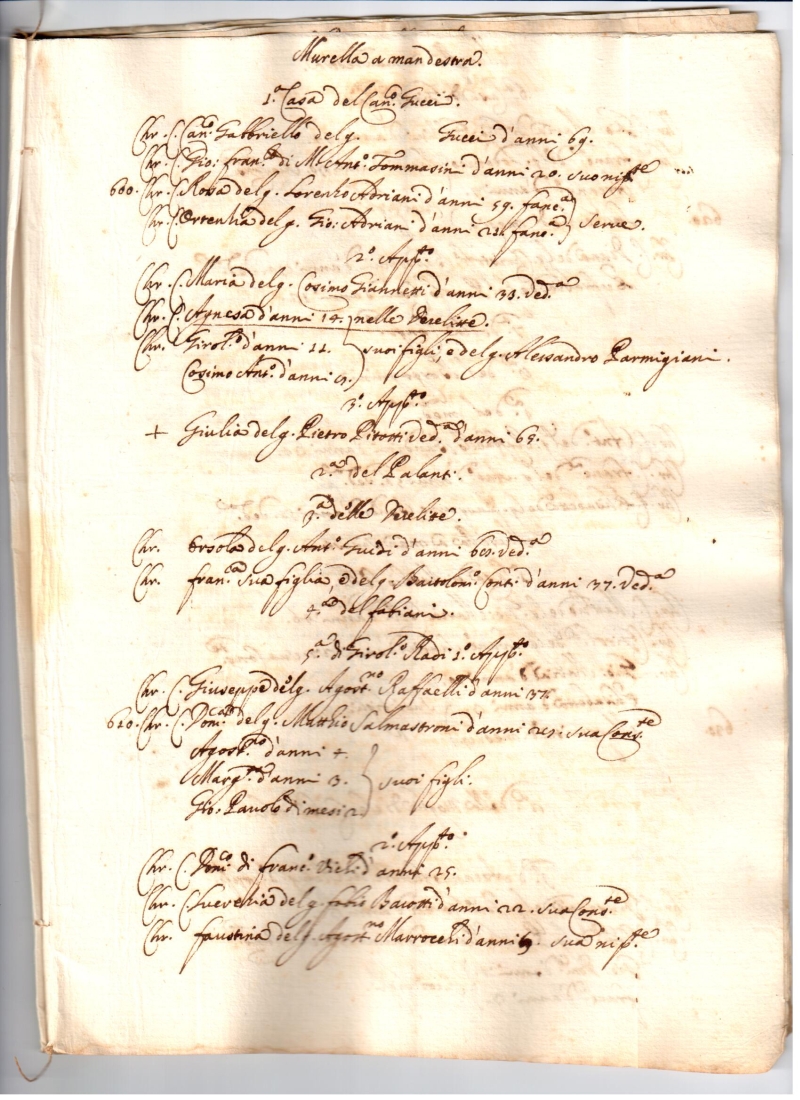 Murella a man destra.
1.ª Casa del Can.º Gucci.
Chr. C. Can.º Gabbriello del q. Gucci d'anni 69.
Chr. C. Gio: Fran.co di M. Ant.º Tommasini d'anni 20. suo nip.te
600. Chr. C. Rosa del q. Lorenzo Adriani d'anni 59. fanc.ª
Chr. C. Ortenzia del q. Gio: Adriani d'anni 21. fanc.ª } serve.
2.º App.to
Chr. C. Maria del q. Cosimo Giannetti d'anni 33. ved.ª
Chr. C. Agnesa d'anni 14. nelle Derelitte.
Chr. C. Girol.º d'anni 11. } suoi figli, e del q. Alessandro Parmigiani.
Cosimo Ant.º d'anni 9.
3.º App.to
+ Giulia del q. Pietro Pitotti ved.ª d'anni 65.
2.ª del Palant:
3.ª delle Derelitte.
Chr. Orsola del q. Ant.º Guidi d'anni 60. ved.ª
Chr. Fran.ca sua figlia, e del q. Bartolom.º Conti d'anni 37. ved.ª
4.ª del Fabiani.
5.ª di Girol.º Radi 1.º App.to
Chr. C. Giuseppe del q. Agost.no Raffaelli d'anni 37.
610. Chr. C. Dom.ca del q. Matteo Salmastroni d'anni 29: sua Cons.te
Agost.no d'anni 4.
Marg.ta d'anni 3. } suoi figli.
Gio: Pauolo di mesi 2
2.º App.to
Chr. C. Dom.co di Franc.º Vieli d'anni 25.
Chr. C. Lucrezia del q. Fabio Baiotti d'anni 22. sua Cons.te
Chr. Faustina del q. Agost.no Marrocchi d'anni 9. sua nip.te